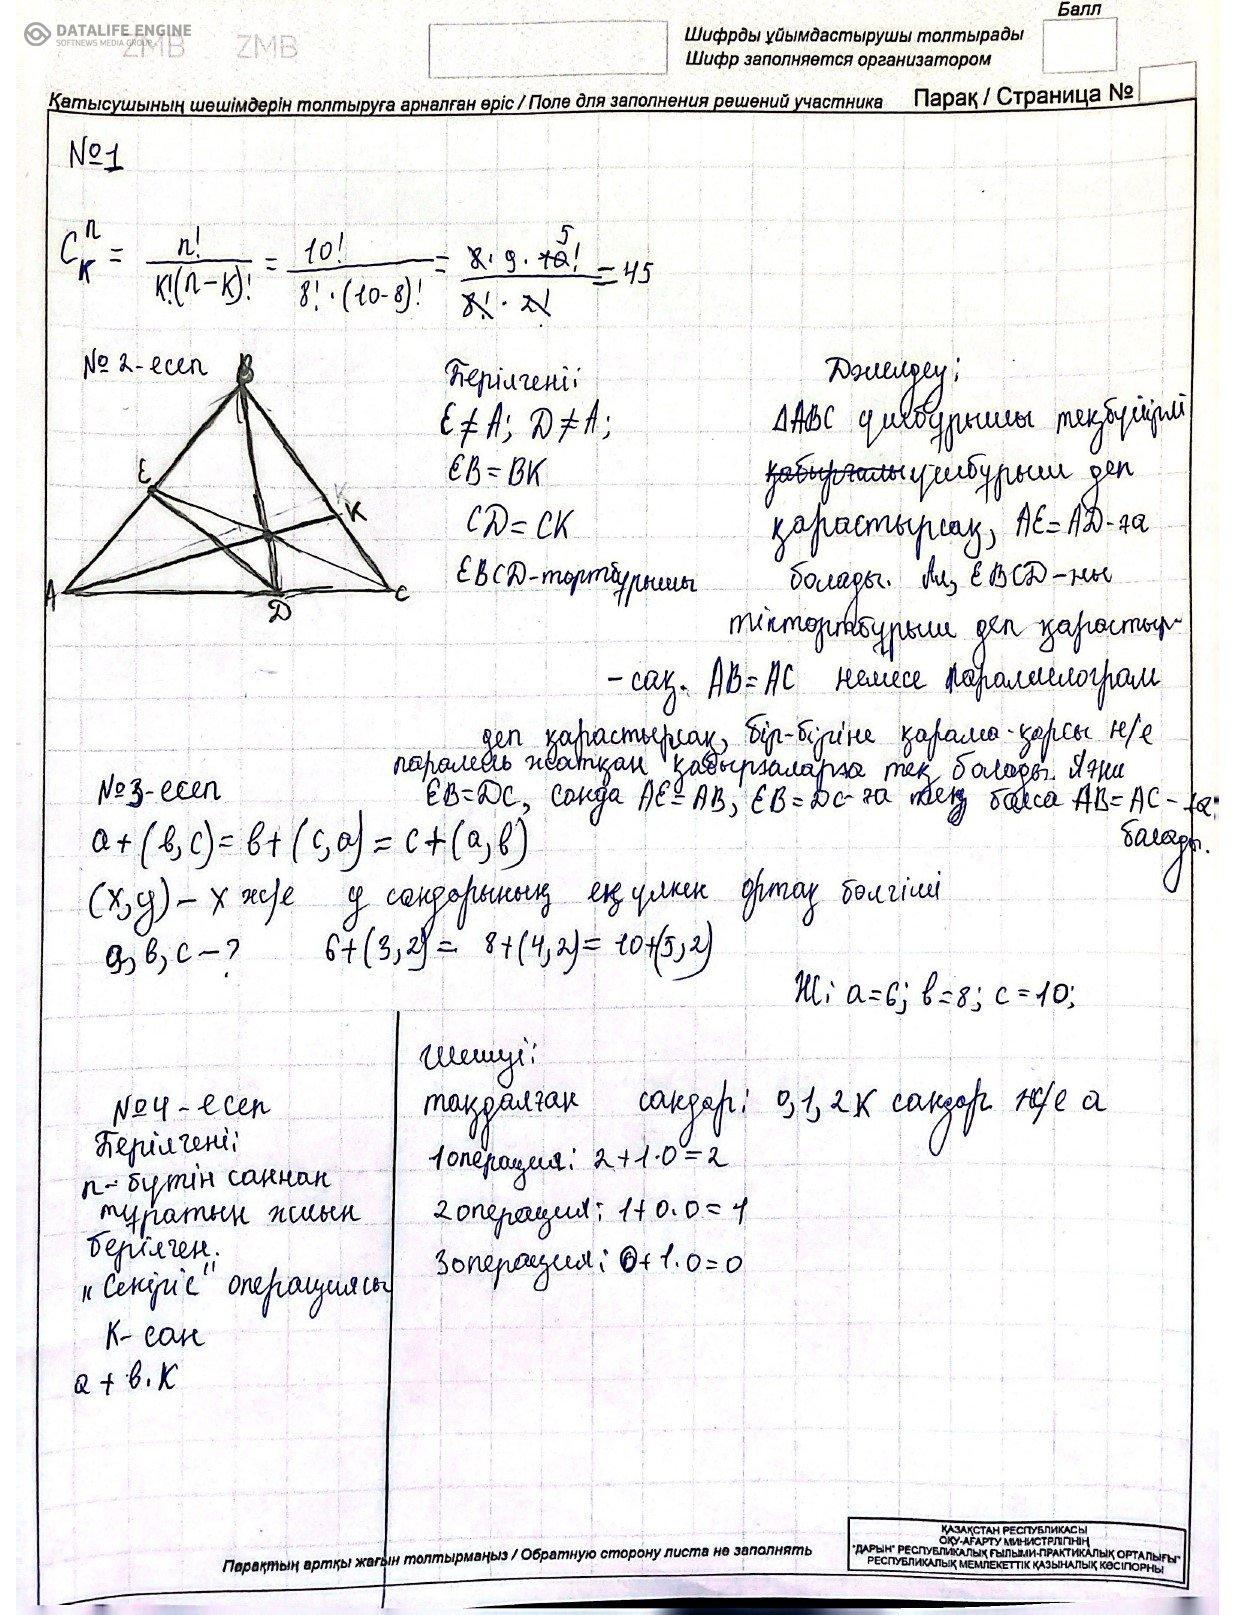 DATALIFE ENGINE
SOFTNEWS MEDIA GROUP
ZMB ZMB
Балл
Шифрды ұйымдастырушы толтырады
Шифр заполняется организатором
Қатысушының шешімдерін толтыруға арналған өріс / Поле для заполнения решений участника Парақ / Страница №
№1
C^n_K = n!/(K!(n-K)!) = 10!/(8!·(10-8)!) = 8·9·10!/(8!·2!) = 45
5
№2-есеп
B
E
K
K
A
D
C
Берілгені:
E≠A; D≠A;
EB=BK
CD=CK
EBCD-төртбұрышы
Дәлелдеу:
ΔABC үшбұрышы теңбүйірлі
қабырғалы үшбұрыш деп
қарастырсақ, AE=AD-ға
болады. Ал, EBCD-ны
тіктөртбұрыш деп қарастыр-
-сақ. AB=AC немесе параллелограм
деп қарастырсақ, бір-біріне қарама-қарсы н/е
паралель жатқан қабырғаларға тең болады. Яғни
EB=DC, сонда AE=AB, EB=DC-ға тең болса AB=AC-ға
болады.
№3-есеп
a+(b,c)=b+(c,a)=c+(a,b)
(x,y)-x ж/е y сандарының ең үлкен ортақ бөлгіші
a,b,c-? 6+(3,2)= 8+(4,2)= 10+(5,2)
Ж: a=6; b=8; c=10;
№4-есеп
Берілгені:
n-бүтін саннан
тұратын жиын
берілген.
"Секіріс" операциясы
K-сан
a+b.K
Шешуі:
таңдалған сандар: 0,1,2 K сандар ж/е a
1операция: 2+1·0=2
2операция: 1+0·0=1
3операция: 0+1·0=0
Парақтың артқы жағын толтырмаңыз / Обратную сторону листа не заполнять
ҚАЗАҚСТАН РЕСПУБЛИКАСЫ
ОҚУ-АҒАРТУ МИНИСТРЛІГІНІҢ
"ДАРЫН" РЕСПУБЛИКАЛЫҚ ҒЫЛЫМИ-ПРАКТИКАЛЫҚ ОРТАЛЫҒЫ"
РЕСПУБЛИКАЛЫҚ МЕМЛЕКЕТТІК ҚАЗЫНАЛЫҚ КӘСІПОРНЫ